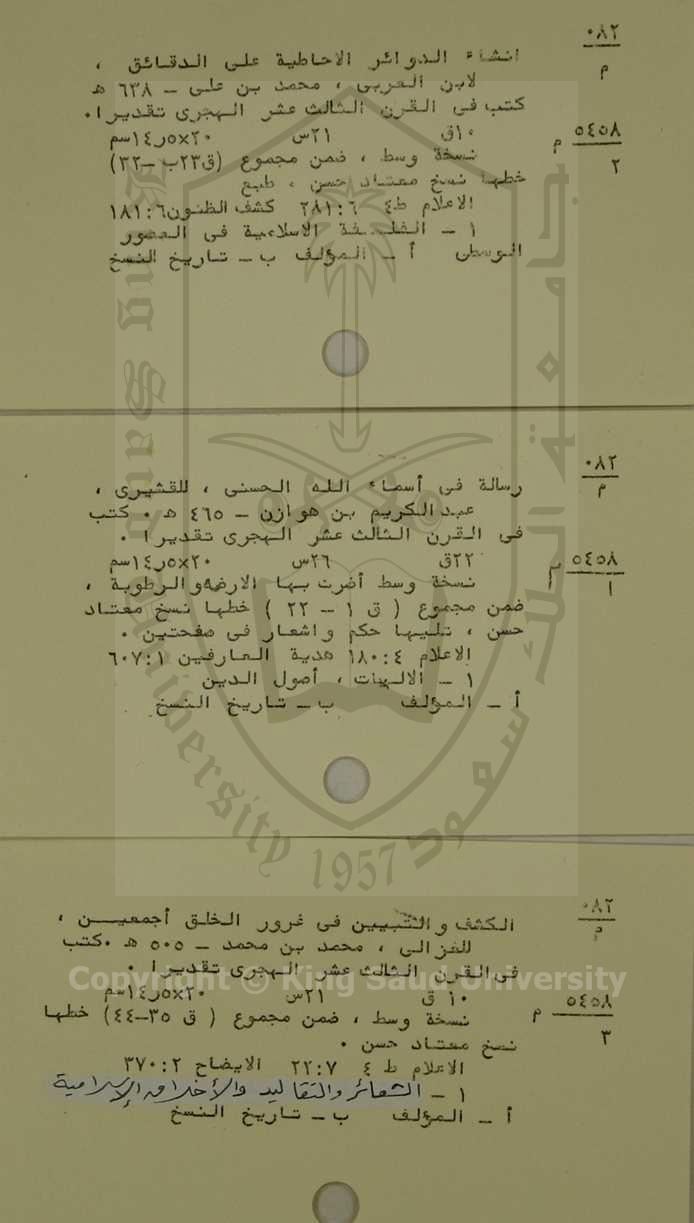 ٠٨٢
م
انشاء الدوائر الاحاطية على الدقائق ،
لابن العربى ، محمد بن على ـ ٦٣٨ ه
كتب فى القرن الثالث عشر الهجرى تقديرا.
١٠ق ٢١س ٢٠×١٤٫٥سم
٥٤٥٨ م
٢
نسخة وسط ، ضمن مجموع (ق٢٣ب ـ٣٢)
خطها نسخ معتاد حسن ، طبع
الاعلام ط٤ ٢٨١:٦ كشف الظنون١٨١:٦
١ ـ الفلسفة الاسلامية فى العصور
الوسطى أ ـ المؤلف ب ـ تاريخ النسخ
٠٨٢
م
رسالة فى أسماء الله الحسنى ، للقشيرى ،
عبد الكريم بن هوازن ـ ٤٦٥ ه . كتب
فى القرن الثالث عشر الهجرى تقديرا .
٢٢ق ٢٦س ٢٠×١٤٫٥سم
٥٤٥٨ م
١
نسخة وسط أضرت بها الارضة والرطوبة ،
ضمن مجموع ( ق ١ ـ ٢٢ ) خطها نسخ معتاد
حسن ، تليها حكم واشعار فى صفحتين .
الاعلام ١٨٠:٤ هدية العارفين ٦٠٧:١
١ ـ الالهيات ، أصول الدين
أ ـ المؤلف ب ـ تاريخ النسخ
٠٨٢
م
الكشف والتبيين فى غرور الخلق أجمعيـن ،
للغزالى ، محمد بن محمد ـ ٥٠٥ ه .كتب
فى القرن الثالث عشر الهجرى تقديرا .
١٠ ق ٢١س ٢٠×١٤٫٥سم
٥٤٥٨ م
٣
نسخة وسط ، ضمن مجموع ( ق ٣٥ـ٤٤) خطها
نسخ معتاد حسن .
الاعلام ط ٤ ٢٢:٧ الايضاح ٣٧٠:٢
١ ـ الشعائر والتقاليد والأخلاق الإسلامية
أ ـ المؤلف ب ـ تاريخ النسخ
جامعة الملك سعود
King Saud University
1957
Copyright © King Saud University